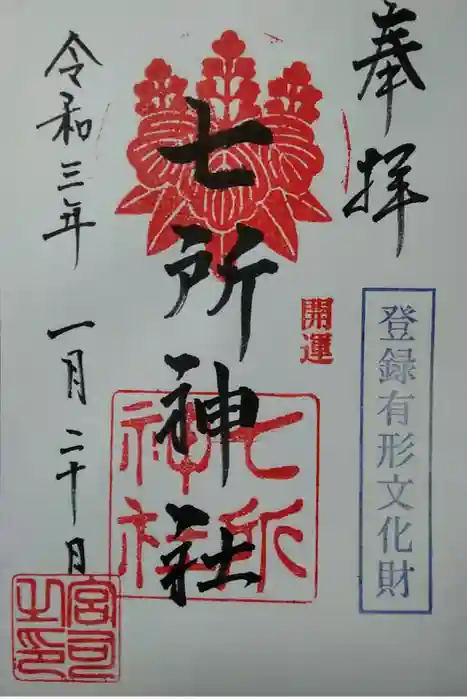 奉拝
登録有形文化財
開運
七所神社
七所
神社
令和三年 一月二十日
宮司
之印